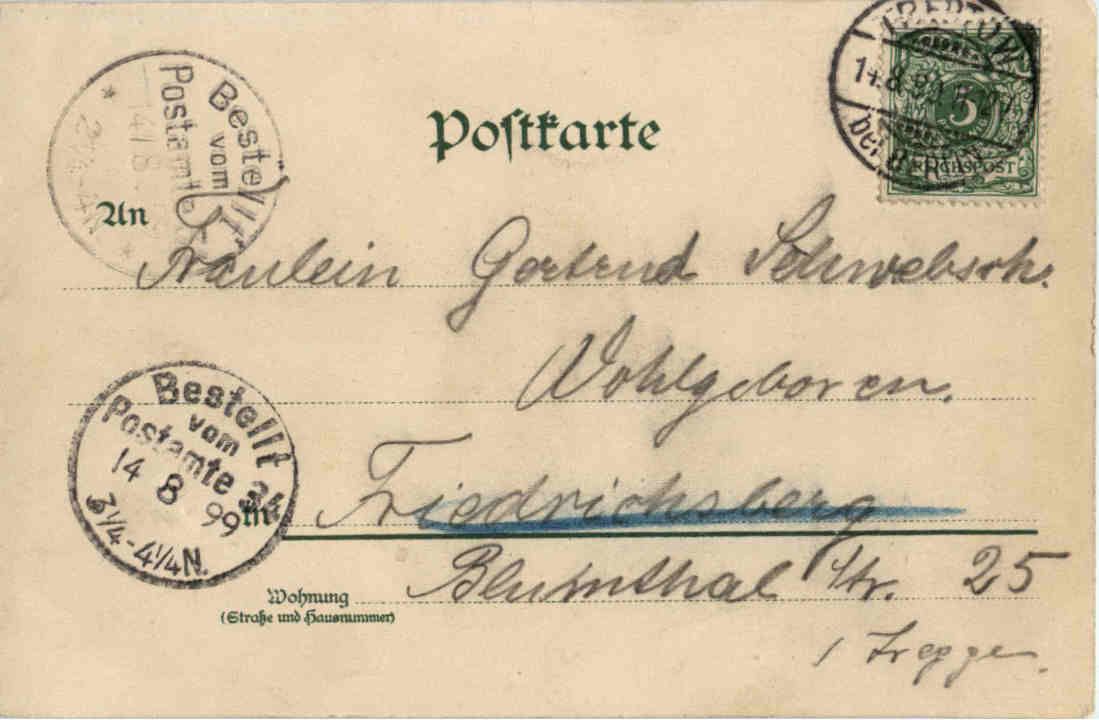 Postkarte
TREPTOW
14.8.99
bei BERLIN
5
REICHSPOST
Bestellt
vom
Postamte
14/8
An
Fräulein Gertrud
Wohlgeboren.
Bestellt
vom
Postamte 34
14 8 99
3¼-4¼N.
in Friedrichsberg
Wohnung
(Straße und Hausnummer)
Blumthal Str. 25